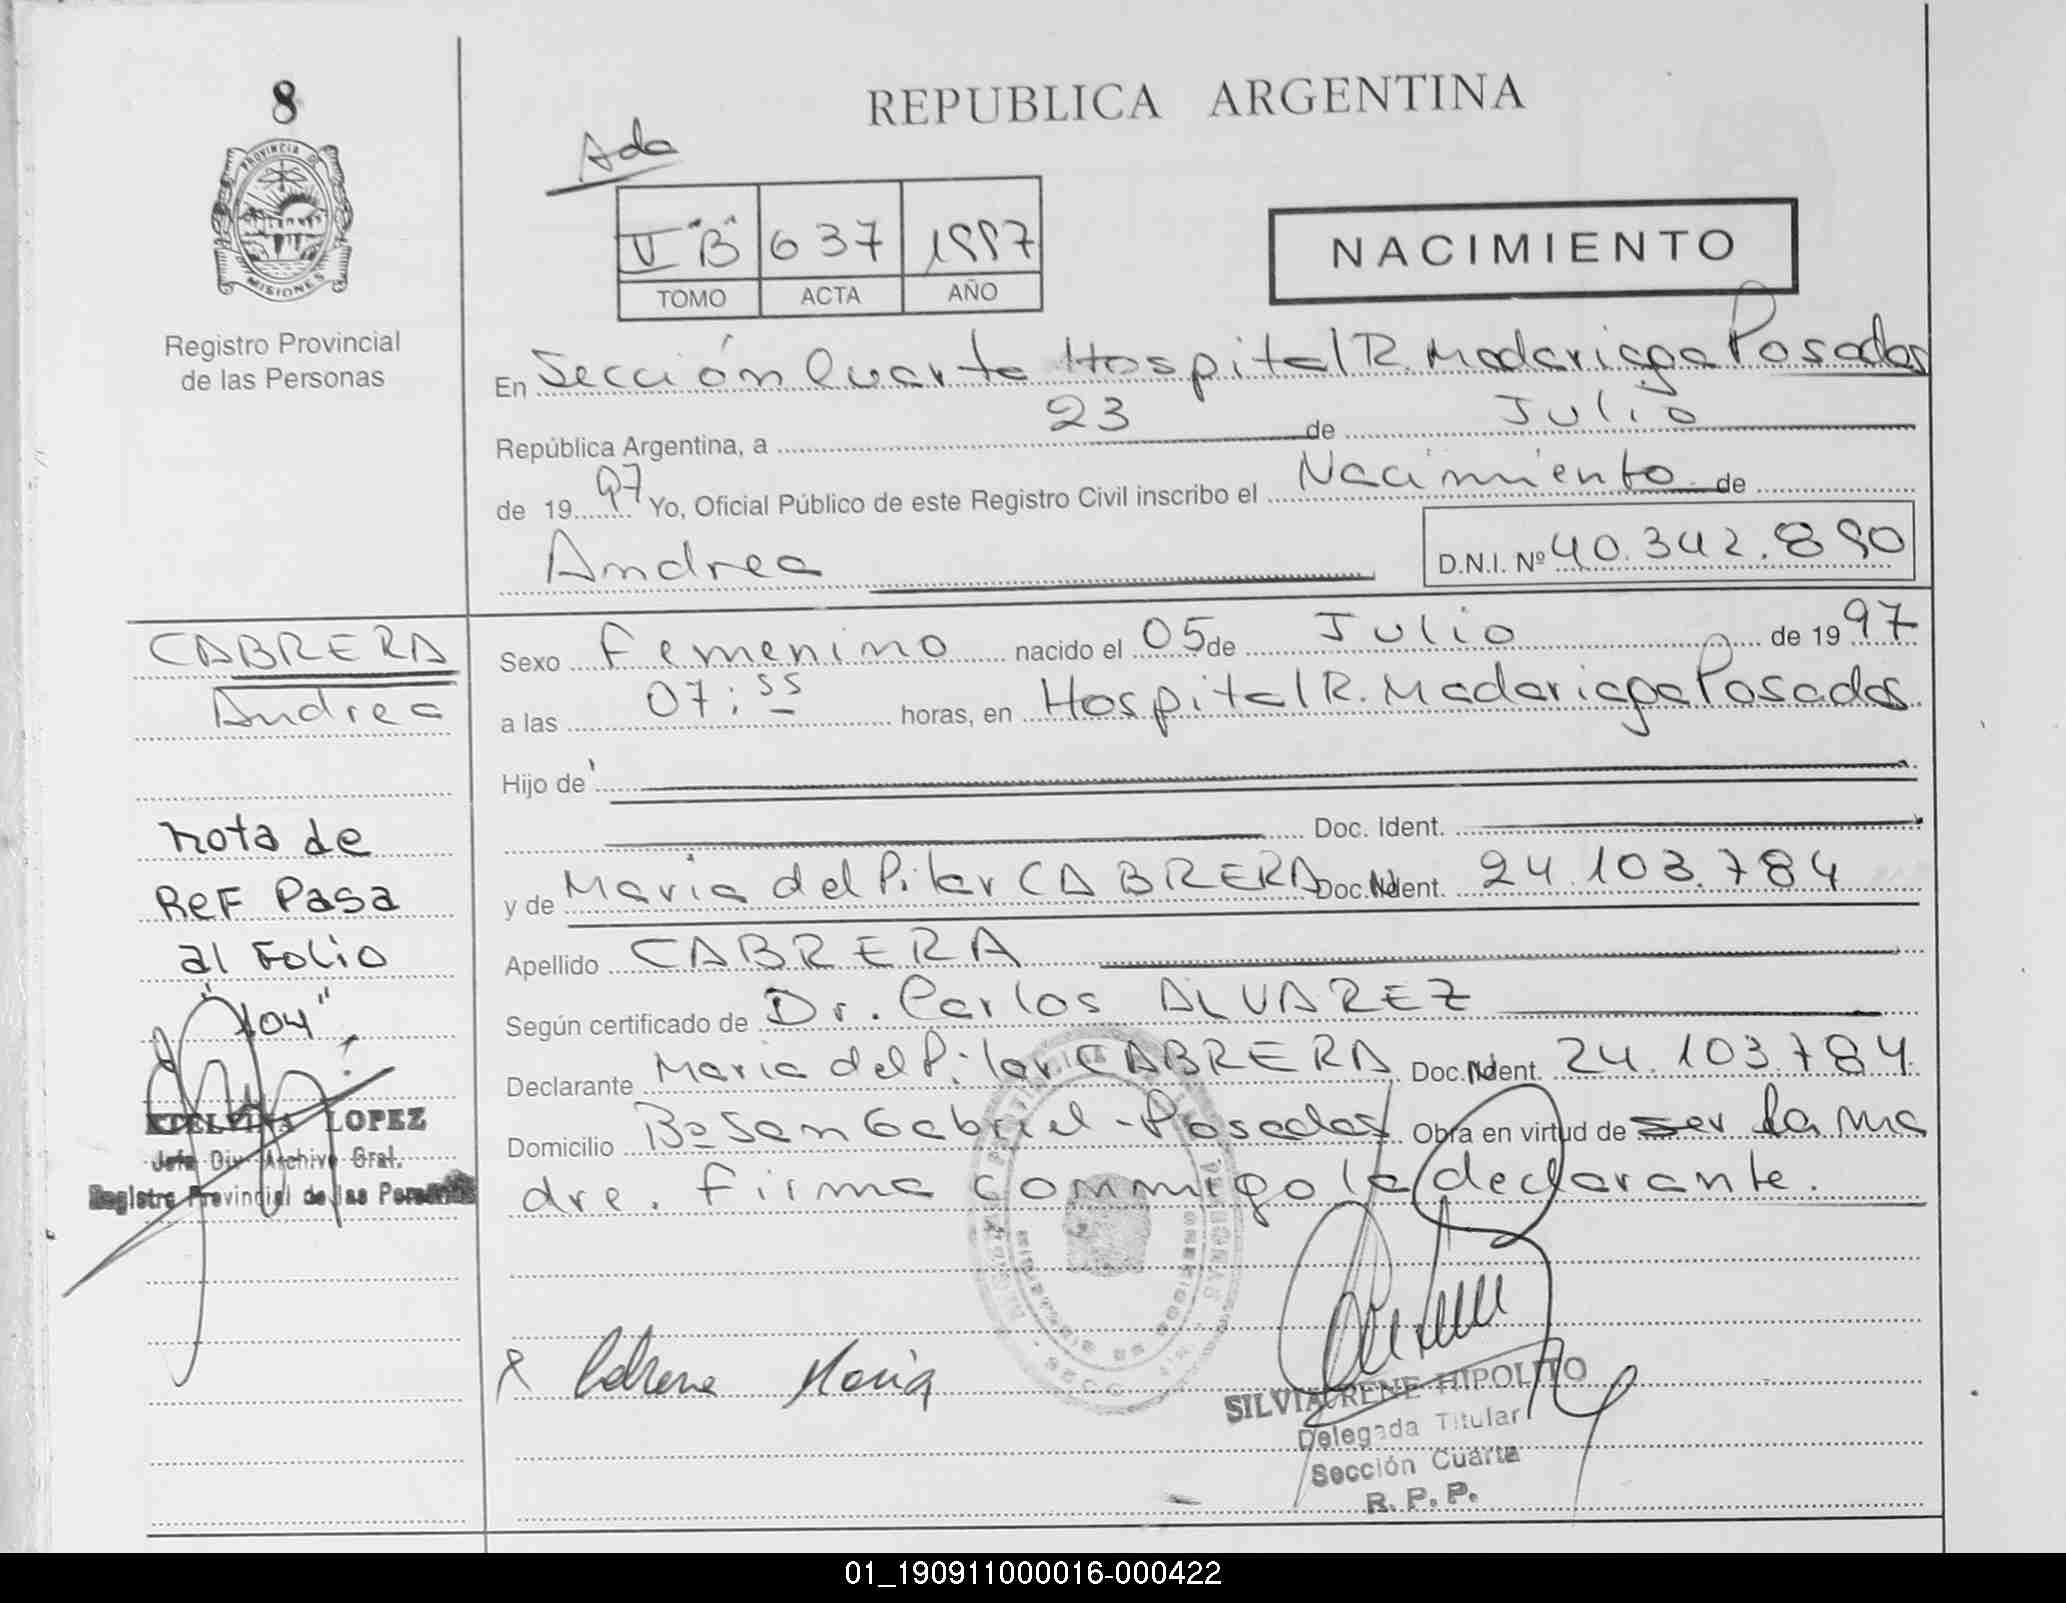 8
REPUBLICA ARGENTINA
Ada
V "B" 637 1997
TOMO ACTA AÑO
NACIMIENTO
PROVINCIA DE MISIONES
Registro Provincial
de las Personas
En Sección Cuarta Hospital R. Madariaga Posadas
República Argentina, a 23 de Julio
de 1997 Yo, Oficial Público de este Registro Civil inscribo el Nacimiento de
Andrea D.N.I. Nº 40.342.890
CABRERA
Andrea
Sexo Femenino nacido el 05 de Julio de 1997
a las 07:55 horas, en Hospital R. Madariaga Posadas
Hijo de
Doc. Ident.
y de Maria del Pilar CABRERA Doc. Ident. 24.103.784
Apellido CABRERA
Según certificado de Dr. Carlos ALVAREZ
Declarante Maria del Pilar CABRERA Doc. Ident. 24.103.784.
Domicilio Bº San Gabriel - Posadas Obra en virtud de ser la ma
dre. Firma conmigo la declarante.
nota de
Ref Pasa
al Folio
"104"
LOPEZ
Jefa Div. Archivo Gral.
Registro Provincial de las Personas
Cabrera Maria
SILVIA IRENE HIPOLITO
Delegada Titular
Sección Cuarta
R. P. P.
01_190911000016-000422